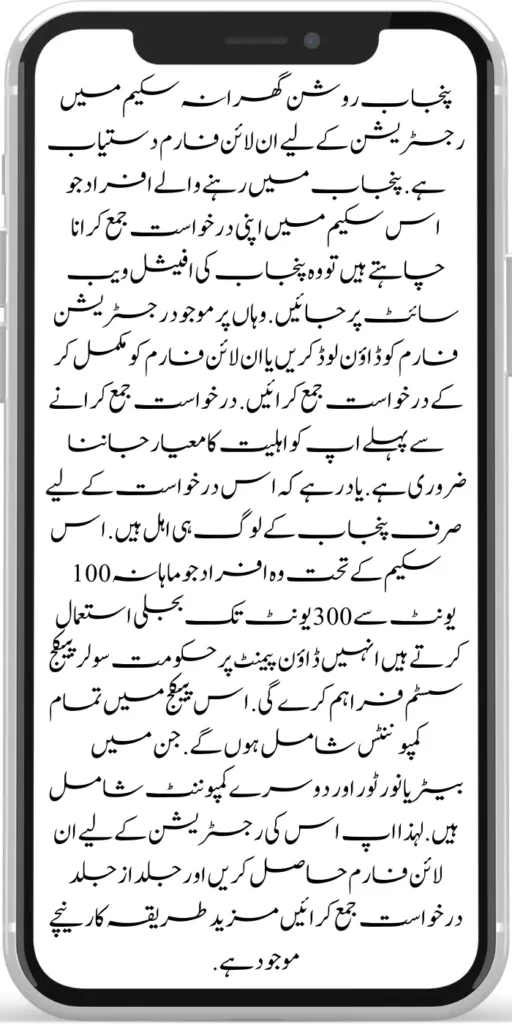 پنجاب روشن گھرانہ سکیم میں
رجسٹریشن کے لیے ان لائن فارم دستیاب
ہے. پنجاب میں رہنے والے افراد جو
اس سکیم میں اپنی درخواست جمع کرانا
چاہتے ہیں تو وہ پنجاب کی افیشل ویب
سائٹ پر جائیں. وہاں پر موجود رجسٹریشن
فارم کو ڈاؤن لوڈ کریں یا ان لائن فارم کو مکمل کر
کے درخواست جمع کرائیں. درخواست جمع کرانے
سے پہلے اپ کو اہلیت کا معیار جاننا
ضروری ہے. یاد رہے کہ اس درخواست کے لیے
صرف پنجاب کے لوگ ہی اہل ہیں. اس
سکیم کے تحت وہ افراد جو ماہانہ 100
یونٹ سے 300 یونٹ تک بجلی استعمال
کرتے ہیں انہیں ڈاؤن پیمنٹ پر حکومت سولر پیکج
سسٹم فراہم کرے گی. اس پیکج میں تمام
کمپوننٹس شامل ہوں گے. جن میں
بیٹریانورٹور اور دوسرے کمپوننٹ شامل
ہیں. لہذا اپ اس کی رجسٹریشن کے لیے ان
لائن فارم حاصل کریں اور جلد از جلد
درخواست جمع کرائیں مزید طریقہ کار نیچے
موجود ہے.